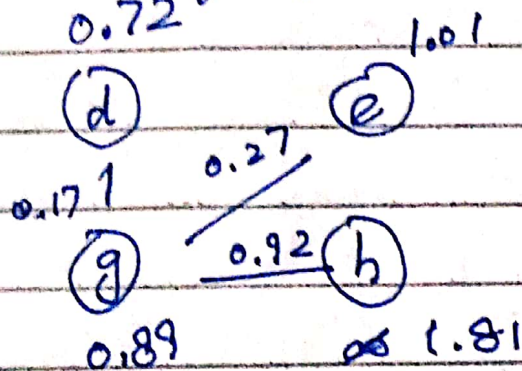 0.72
1.01
d e
0.27
0.17 1
0.92
g h
0.89 1.81